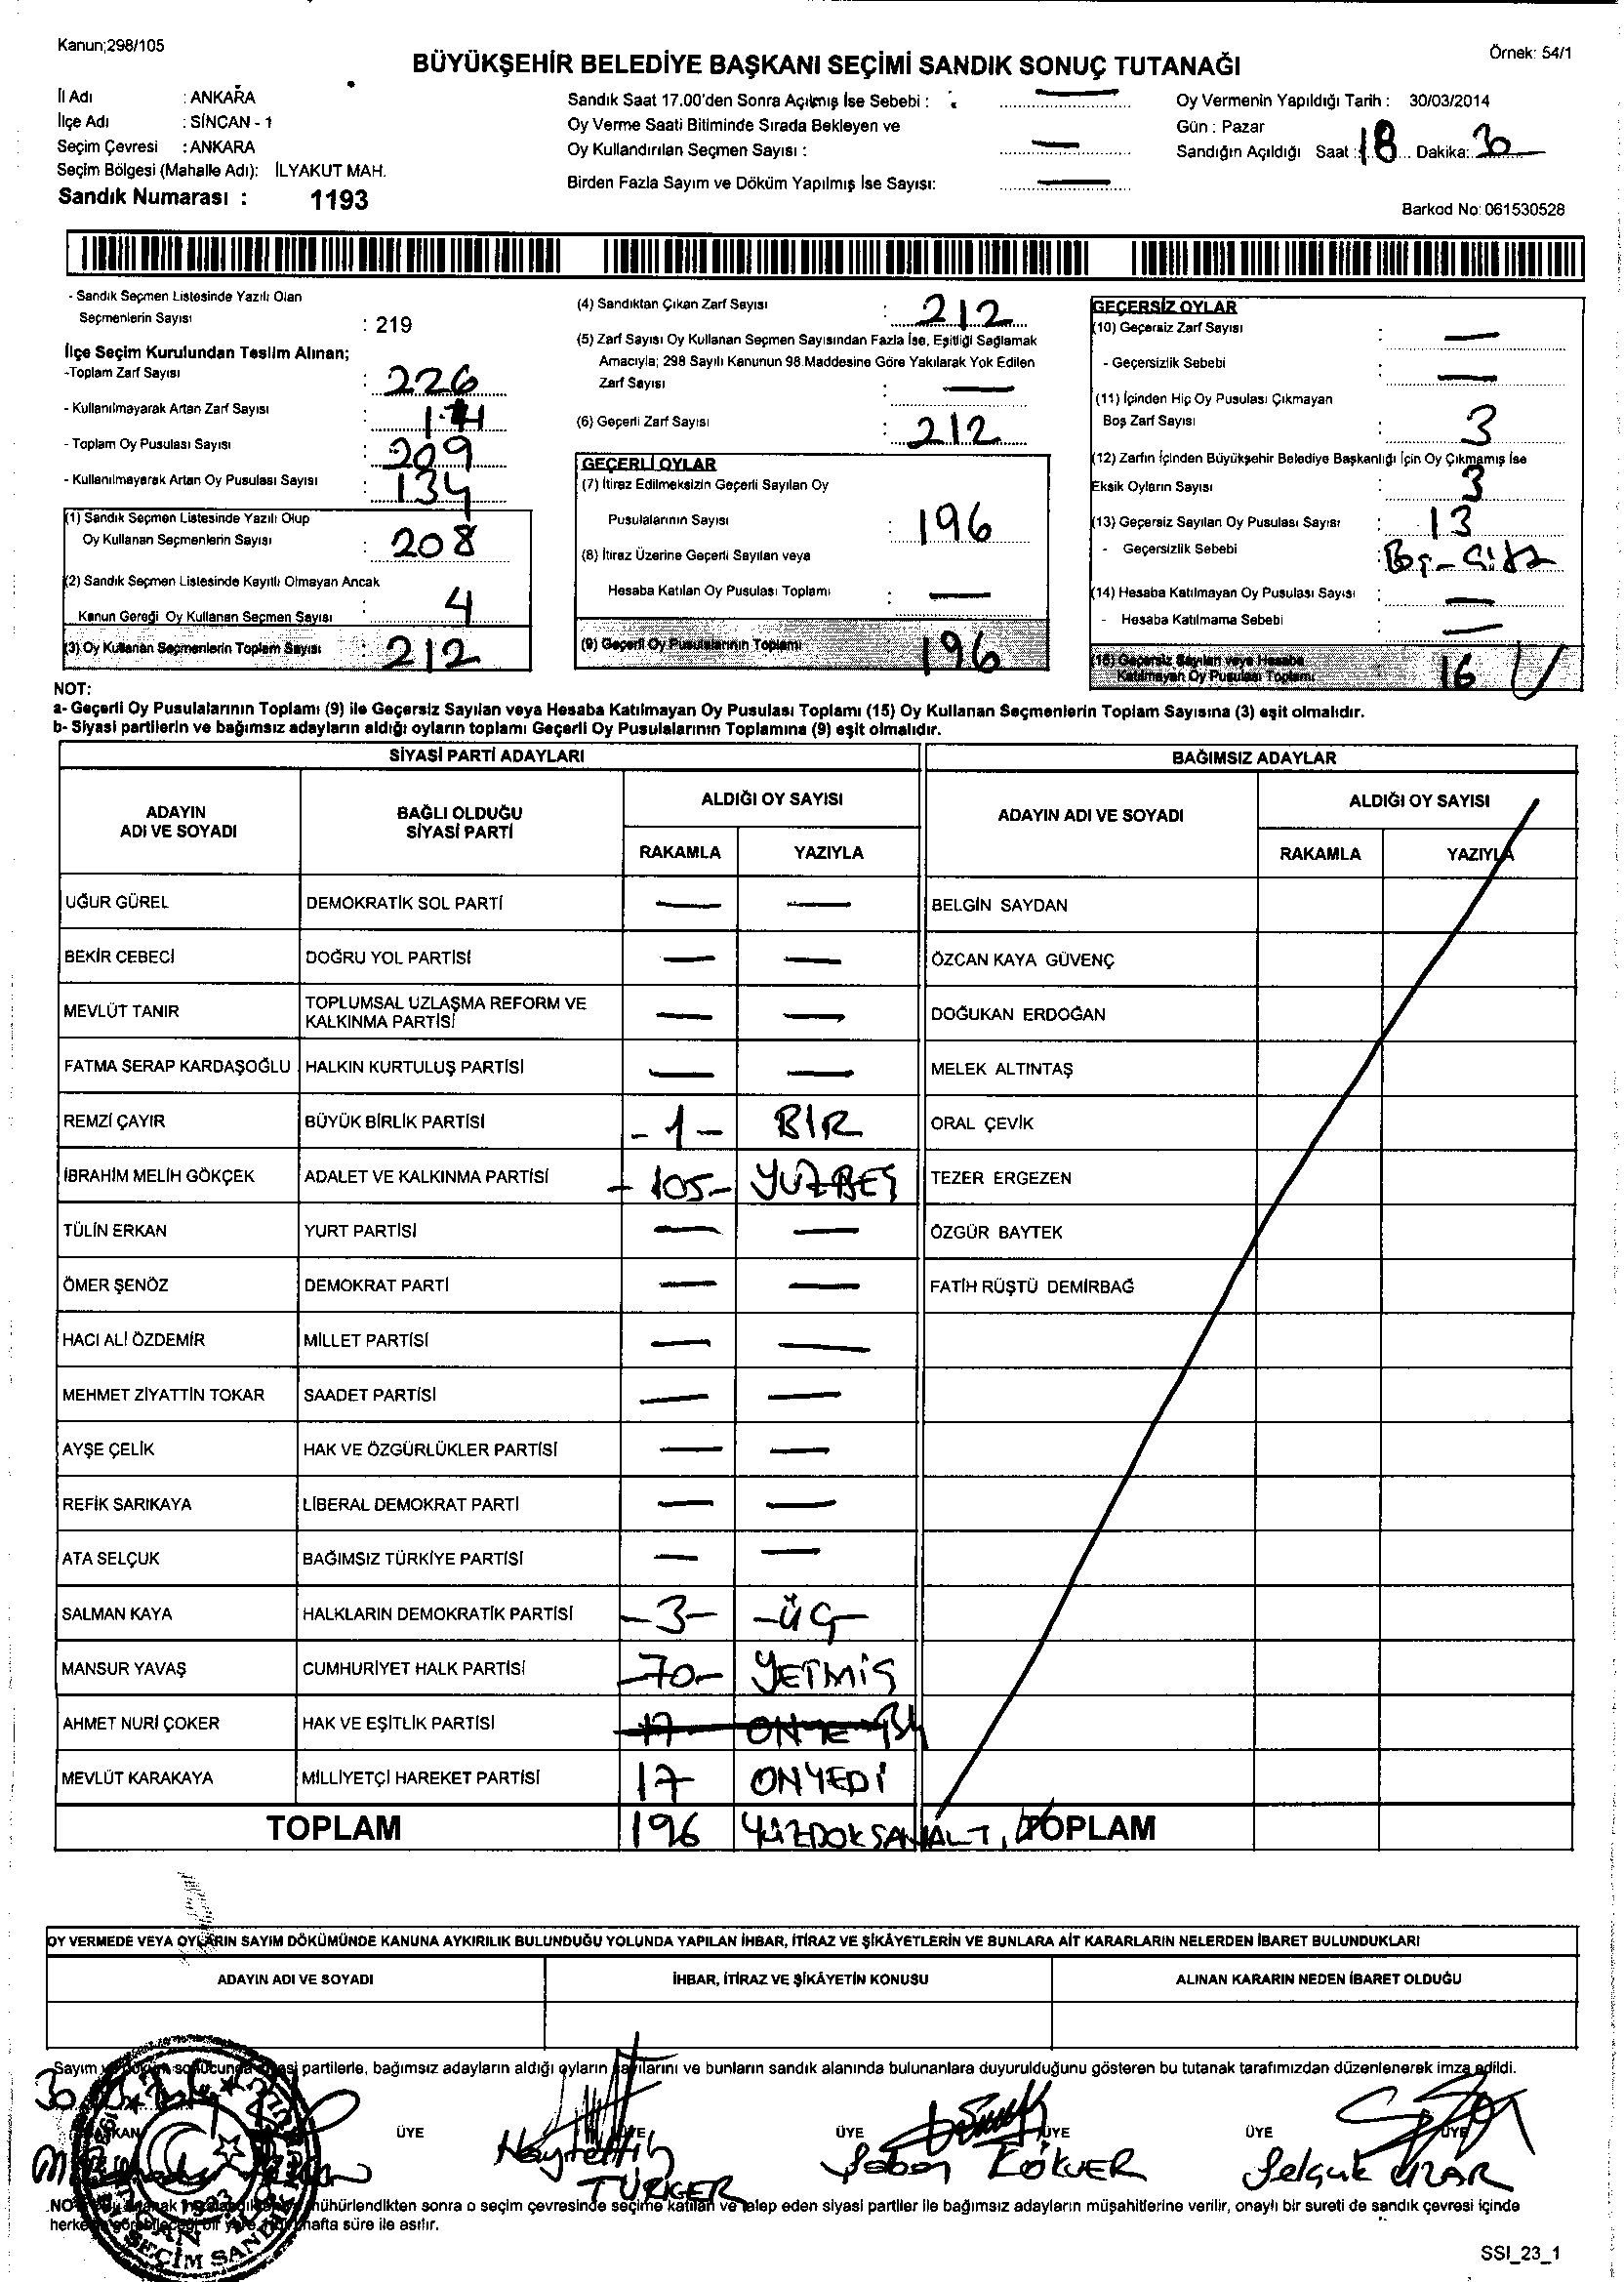 Kanun;298/105
Örnek: 54/1
BÜYÜKŞEHİR BELEDİYE BAŞKANI SEÇİMİ SANDIK SONUÇ TUTANAĞI
İl Adı : ANKARA
İlçe Adı : SİNCAN - 1
Seçim Çevresi : ANKARA
Seçim Bölgesi (Mahalle Adı): İLYAKUT MAH.
Sandık Numarası : 1193
Sandık Saat 17.00'den Sonra Açılmış İse Sebebi : —
Oy Verme Saati Bitiminde Sırada Bekleyen ve
Oy Kullandırılan Seçmen Sayısı : —
Birden Fazla Sayım ve Döküm Yapılmış İse Sayısı: —
Oy Vermenin Yapıldığı Tarih : 30/03/2014
Gün : Pazar
Sandığın Açıldığı Saat : 18 Dakika: 30
Barkod No: 061530528
- Sandık Seçmen Listesinde Yazılı Olan
Seçmenlerin Sayısı : 219
İlçe Seçim Kurulundan Teslim Alınan;
-Toplam Zarf Sayısı : 226
- Kullanılmayarak Artan Zarf Sayısı :
- Toplam Oy Pusulası Sayısı : 209
- Kullanılmayarak Artan Oy Pusulası Sayısı : 134
(1) Sandık Seçmen Listesinde Yazılı Olup
Oy Kullanan Seçmenlerin Sayısı : 208
(2) Sandık Seçmen Listesinde Kayıtlı Olmayan Ancak
Kanun Gereği Oy Kullanan Seçmen Sayısı : 4
(3) Oy Kullanan Seçmenlerin Toplam Sayısı : 212
(4) Sandıktan Çıkan Zarf Sayısı : 212
(5) Zarf Sayısı Oy Kullanan Seçmen Sayısından Fazla İse, Eşitliği Sağlamak
Amacıyla; 298 Sayılı Kanunun 98.Maddesine Göre Yakılarak Yok Edilen
Zarf Sayısı : —
(6) Geçerli Zarf Sayısı : 212
GEÇERLİ OYLAR
(7) İtiraz Edilmeksizin Geçerli Sayılan Oy
Pusulalarının Sayısı : 196
(8) İtiraz Üzerine Geçerli Sayılan veya
Hesaba Katılan Oy Pusulası Toplamı : —
(9) Geçerli Oy Pusulalarının Toplamı 196
GEÇERSİZ OYLAR
(10) Geçersiz Zarf Sayısı : —
- Geçersizlik Sebebi : —
(11) İçinden Hiç Oy Pusulası Çıkmayan
Boş Zarf Sayısı : 3
(12) Zarfın İçinden Büyükşehir Belediye Başkanlığı İçin Oy Çıkmamış İse
Eksik Oyların Sayısı : 3
(13) Geçersiz Sayılan Oy Pusulası Sayısı : 13
- Geçersizlik Sebebi :
(14) Hesaba Katılmayan Oy Pusulası Sayısı : —
- Hesaba Katılmama Sebebi : —
(15) Geçersiz Sayılan veya Hesaba
Katılmayan Oy Pusulası Toplamı 16
NOT:
a- Geçerli Oy Pusulalarının Toplamı (9) ile Geçersiz Sayılan veya Hesaba Katılmayan Oy Pusulası Toplamı (15) Oy Kullanan Seçmenlerin Toplam Sayısına (3) eşit olmalıdır.
b- Siyasi partilerin ve bağımsız adayların aldığı oyların toplamı Geçerli Oy Pusulalarının Toplamına (9) eşit olmalıdır.
SİYASİ PARTİ ADAYLARI
ADAYIN ADI VE SOYADI BAĞLI OLDUĞU SİYASİ PARTİ ALDIĞI OY SAYISI
RAKAMLA YAZIYLA
UĞUR GÜREL DEMOKRATİK SOL PARTİ — —
BEKİR CEBECİ DOĞRU YOL PARTİSİ — —
MEVLÜT TANIR TOPLUMSAL UZLAŞMA REFORM VE KALKINMA PARTİSİ — —
FATMA SERAP KARDAŞOĞLU HALKIN KURTULUŞ PARTİSİ — —
REMZİ ÇAYIR BÜYÜK BİRLİK PARTİSİ - 1 - BIR
İBRAHİM MELİH GÖKÇEK ADALET VE KALKINMA PARTİSİ - 105 - YUZBEŞ
TÜLİN ERKAN YURT PARTİSİ — —
ÖMER ŞENÖZ DEMOKRAT PARTİ — —
HACI ALİ ÖZDEMİR MİLLET PARTİSİ — —
MEHMET ZİYATTİN TOKAR SAADET PARTİSİ — —
AYŞE ÇELİK HAK VE ÖZGÜRLÜKLER PARTİSİ — —
REFİK SARIKAYA LİBERAL DEMOKRAT PARTİ — —
ATA SELÇUK BAĞIMSIZ TÜRKİYE PARTİSİ — —
SALMAN KAYA HALKLARIN DEMOKRATİK PARTİSİ -3- -ÜÇ-
MANSUR YAVAŞ CUMHURİYET HALK PARTİSİ -70- YETMİŞ
AHMET NURİ ÇOKER HAK VE EŞİTLİK PARTİSİ 17
MEVLÜT KARAKAYA MİLLİYETÇİ HAREKET PARTİSİ 17 ONYEDİ
TOPLAM 196 YÜZDOKSANALTI
BAĞIMSIZ ADAYLAR
ADAYIN ADI VE SOYADI ALDIĞI OY SAYISI
RAKAMLA YAZIYLA
BELGİN SAYDAN
ÖZCAN KAYA GÜVENÇ
DOĞUKAN ERDOĞAN
MELEK ALTINTAŞ
ORAL ÇEVİK
TEZER ERGEZEN
ÖZGÜR BAYTEK
FATİH RÜŞTÜ DEMİRBAĞ
TOPLAM
OY VERMEDE VEYA OYLARIN SAYIM DÖKÜMÜNDE KANUNA AYKIRILIK BULUNDUĞU YOLUNDA YAPILAN İHBAR, İTİRAZ VE ŞİKÂYETLERİN VE BUNLARA AİT KARARLARIN NELERDEN İBARET BULUNDUKLARI
ADAYIN ADI VE SOYADI İHBAR, İTİRAZ VE ŞİKÂYETİN KONUSU ALINAN KARARIN NEDEN İBARET OLDUĞU
Sayım partilerle, bağımsız adayların aldığı oyların sayılarını ve bunların sandık alanında bulunanlara duyurulduğunu gösteren bu tutanak tarafımızdan düzenlenerek imza edildi.
BAŞKAN ÜYE ÜYE ÜYE ÜYE ÜYE ÜYE
Hayrettin TÜRKER
Şaban KÖKVER
Selçuk UZAR
NOT: mühürlendikten sonra o seçim çevresinde seçime katılan ve talep eden siyasi partiler ile bağımsız adayların müşahitlerine verilir, onaylı bir sureti de sandık çevresi içinde
hafta süre ile asılır.
SEÇİM SANDIK
SSI_23_1